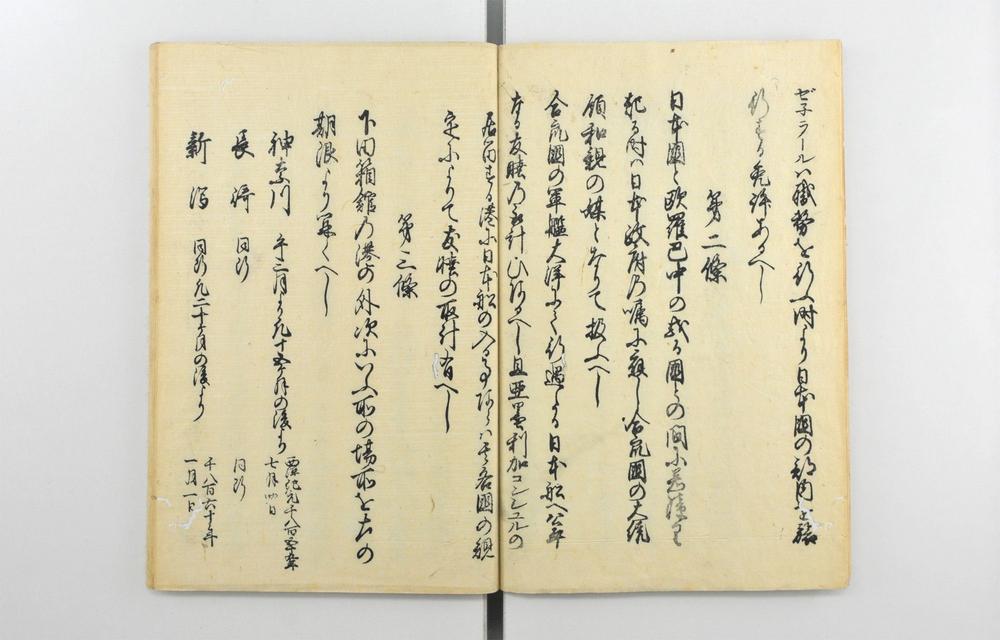 ゼネラールハ職務を行ふ時より日本國の部内を旅
行する免許あるへし
第二條
日本國と歐羅巴中の或る國との間に差障起る
時ハ日本政府の囑に應し合衆國の大統
領和親の媒となりて扱ふへし
合衆國の軍艦大洋にて行遇たる日本船へ公平
なる友睦の取計ひあるへし且亜墨利加コンシュルの
居留する港に日本船の入る事あらハ其各國の規
定によりて友睦の取計有へし
第三條
下田箱館の港の外次にいふ所の場所を左の
期限より開くへし
神奈川 午三月より凡十五ヶ月の後より 西洋紀元千八百五十九年
七月四日
長崎 同断 同断
新潟 同断凡二十ヶ月の後より 千八百六十年
一月一日